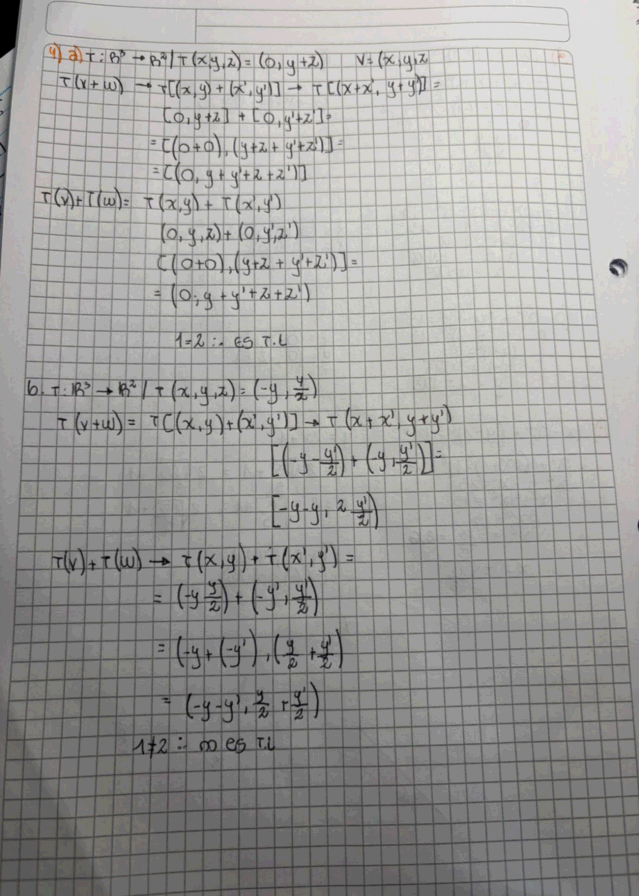 4) a) T: R³ → R² / T(x,y,z) = (0, y+z)   V=(x,y,z
T(v+w) → T[(x,y) + (x',y')] → T[(x+x', y+y')] =
[0,y+z] + [0,y'+z']=
= [(0+0),(y+z + y'+z')]=
= [(0, y+y'+z+z')]
T(v)+T(w)= T(x,y) + T(x',y')
(0,y,z)+(0,y',z')
[(0+0),(y+z + y'+z')]=
= (0, y+y'+z+z')
1=2 ∴ ES T.L
b. T: R³ → R² / T(x,y,z) = (-y, y/2)
T(v+w) = T[(x,y)+(x',y')] → T(x+x', y+y')
[(-y - y'/2) + (-y, y'/2)]=
[-y-y, 2 y'/2)
T(v)+T(w) → T(x,y) + T(x',y') =
= (-y y/2) + (-y', y'/2)
= (-y+(-y'), (y/2 + y'/2)
= (-y-y', y/2 + y'/2)
1≠2 ∴ no es T.L